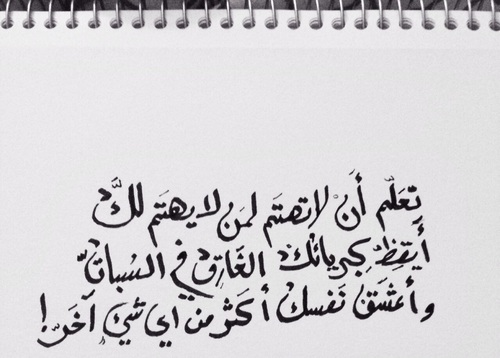 تَعَلّم أَنْ لا تهتَم لمَن لا يهتَم لكَ
أَيقِظْ كِبريائكْ الغَارِق في السُباتْ
وأعشَق نَفسك أكثَر من اي شيءٍ آخَر !